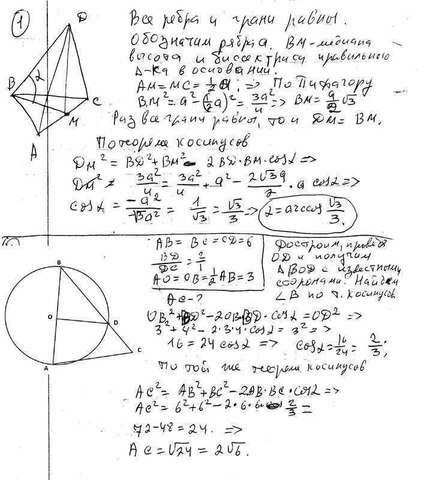 1
Все ребра и грани равны.
Обозначим рябра. BM - медиана
высота и биссектриса правильного
Δ-ка в основании.
AM = MC = 1/2 a. => По Пифагору
BM² = a² - (1/2 a)² = 3a²/4 => BM = a/2 √3
Раз все грани равны, то и DM = BM.
По теореме косинусов
DM² = BD² + BM² - 2 BD · BM · cos α =>
DM² = 3a²/4 = 3a²/4 + a² - 2√3a/2 · a cos α =>
cos α = -a²/√3a² = 1/√3 = √3/3 => α = arccos √3/3.
D
B
α
C
M
A
AB = BC = CD = 6
BD/DC = 2/1
AO = OB = 1/2 AB = 3
AC - ?
Достроим, проведя
OD и получим
ΔBOD с известными
сторонами. Найдем
∠B по т. косинусов
OB² + BD² - 2OB · BD · cos α = OD² =>
3² + 4² - 2·3·4·cos α = 3² =>
16 = 24 cos α => cos α = 16/24 = 2/3;
По той же теореме косинусов
AC² = AB² + BC² - 2AB · BC · cos α =>
AC² = 6² + 6² - 2·6·6 · 2/3 =
72 - 48 = 24. =>
AC = √24 = 2√6.
B
O
D
C
A